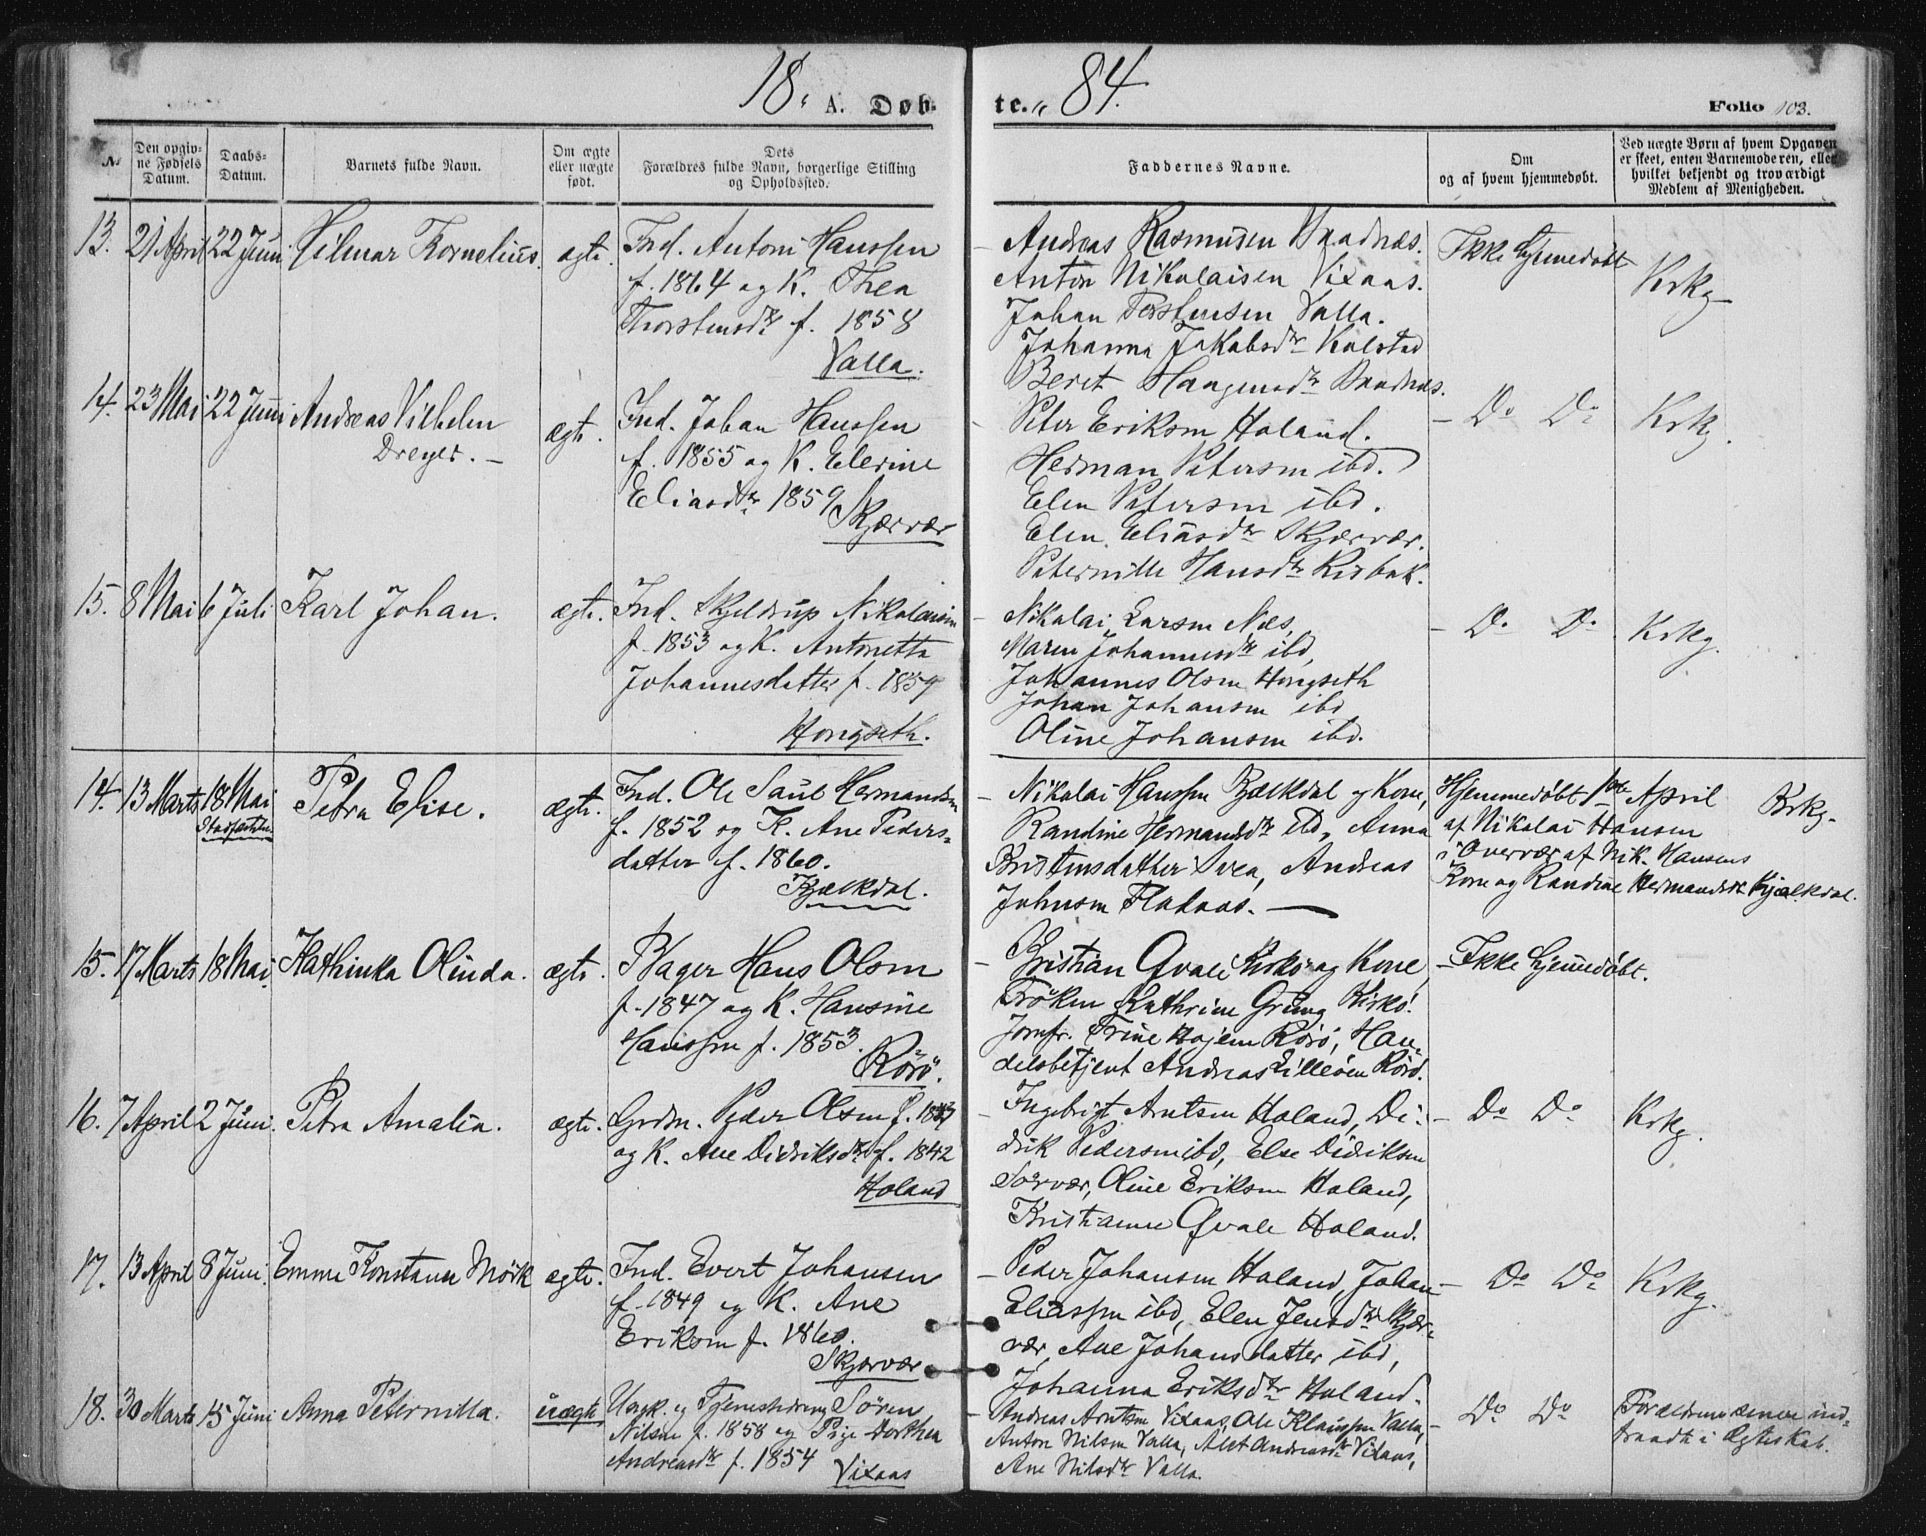 18 A. Døb-
te. 84.
Folio 103.
№
Den opgiv-
ne Fødsels
Datum.
Daabs-
Datum.
Barnets fulde Navn.
Om ægte
eller uægte
født.
Dets
Forældres fulde Navn, borgerlige Stilling
og Opholdssted.
Faddernes Navne.
Om
og af hvem hjemmedøbt.
Ved uægte Børn af hvem Opgaven
er skeet, enten Barnemoderen, eller
hvilket bekjendt og troværdigt
Medlem af Menigheden.
13. 21 April 22 Juni Hilmar Kornelius. ægte. Ind. Antoni Hanssen
f. 1864 og K. Thea
Thorstensdtr f. 1858
Valla.
Andreas Rasmusen
Anton Nikolaisen Vixaas.
Johan Torstensen Valla.
Johanna Jakobsdtr Kolstad
Beret Haagensdtr
Ikke hjemmedøbt Krkg
14. 23 Mai 22 Juni Andreas Vilhelm
Dreyer. —
ægte. Ind. Johan Hanssen
f. 1855 og K. Elerine
Eliasdtr 1859
Skjærvær
Peter Eriksen Holand.
Herman Petersen ibd.
Elen Petersen ibd.
Elen Eliasdtr Skjærvær.
Peternille Hansdtr
— Do Do Krkg.
15. 8 Mai 6 Juli Karl Johan. ægte. Ind. Skjeldrup Nikolaisen
f. 1853 og K. Antonetta
Johannesdatter f. 1859
Hongseth.
Nikolai Larsen Næs,
Maren Johannesdtr ibd,
Johannes Olsen Hongseth
Johan Johansen ibd
Oline Johansen ibd.
— Do Do Krkg.
14. 13 Marts 18 Mai
Stadfæstelse
Petra Elise. ægte. Ind. Ole Saul Hermandsen
f. 1852 og K. Ane Peders-
datter f. 1860.
Kjælkdal.
— Nikolai Hanssen Kjælkdal og Kone,
Randine Hermandsdtr ibd, Anna
Kristensdatter Svea, Andreas
Johnsen Fladaas. —
Hjemmedøbt 1ste April
af Nikolai Hansen
i Overvær af Nik. Hansens
Kone og Randine Hermandsdtr Kjælkdal.
Krkg.
15. 17 Marts 18 Mai Kathinka Olinda. ægte. Bager Hans Olsen
f. 1847 og K. Hansine
Hanssen f. 1853.
Rörö.
— Kristian Qvale Kirkö og Kone,
Fröken Kathrine Grung Kirkö.
Jomfr. Trine Højem Rörö, Han-
delsbetjent Andreas Lilleöen Rörö.
— Ikke hjemmedøbt.
16. 7 April 2 Juni. Petra Amalia. ægte. Grdm. Peder Olsen f.
og K. Ane Didriksdtr f. 1842
Holand
— Ingebrigt Arntsen Holand, Di-
drik Pedersen ibd, Else Didriksen
Sörvær, Oline Eriksen Holand,
Kristianne Qvale Holand.
— Do Do Krkg.
17. 13 April 8 Juni. Emma Konstanse Mörk ægte. Ind. Evert Johansen
f. 1849 og K. Ane
Eriksen f. 1860.
Skjærvær
— Peder Johansen Holand, Johan
Eliassen ibd, Elen Jensdtr Skjær-
vær, Ane Johansdatter ibd,
Johanna Eriksdtr Holand.
— Do Do Krkg.
18. 30 Marts 15 Juni Anna Peternilla. uægte Ungk. og Tjenestedreng Sören
Nilsen f. 1858 og Pige Dorthea
Andreasdtr f. 1854
Vixaas
— Andreas Arntsen Vixaas, Ole Klaussen Valla,
Anton Nilsen Valla, Alet Andreasdtr Vixaas,
Ane Nilsdtr Valla.
— Do Do
Forældrene senere ind-
traadt i Ægteskab.